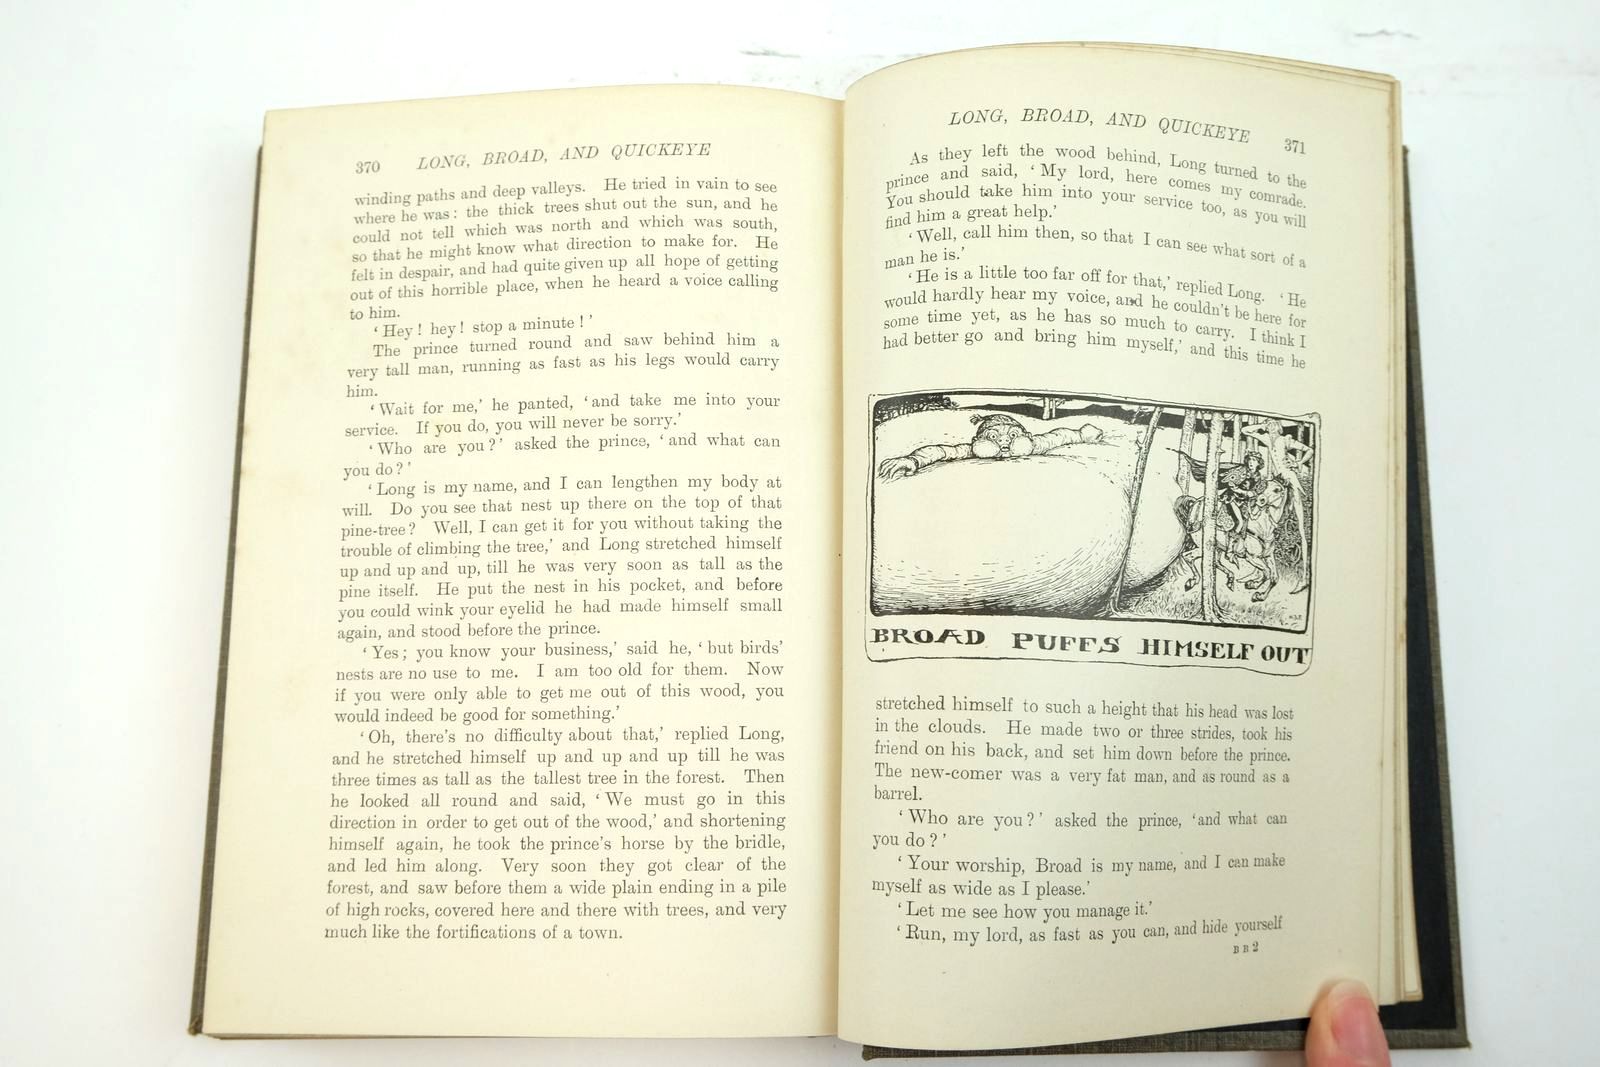 370 LONG, BROAD, AND QUICKEYE
winding paths and deep valleys. He tried in vain to see
where he was: the thick trees shut out the sun, and he
could not tell which was north and which was south,
so that he might know what direction to make for. He
felt in despair, and had quite given up all hope of getting
out of this horrible place, when he heard a voice calling
to him.
‘Hey! hey! stop a minute!’
The prince turned round and saw behind him a
very tall man, running as fast as his legs would carry
him.
‘Wait for me,’ he panted, ‘and take me into your
service. If you do, you will never be sorry.’
‘Who are you?’ asked the prince, ‘and what can
you do?’
‘Long is my name, and I can lengthen my body at
will. Do you see that nest up there on the top of that
pine-tree? Well, I can get it for you without taking the
trouble of climbing the tree,’ and Long stretched himself
up and up and up, till he was very soon as tall as the
pine itself. He put the nest in his pocket, and before
you could wink your eyelid he had made himself small
again, and stood before the prince.
‘Yes; you know your business,’ said he, ‘but birds’
nests are no use to me. I am too old for them. Now
if you were only able to get me out of this wood, you
would indeed be good for something.’
‘Oh, there’s no difficulty about that,’ replied Long,
and he stretched himself up and up and up till he was
three times as tall as the tallest tree in the forest. Then
he looked all round and said, ‘We must go in this
direction in order to get out of the wood,’ and shortening
himself again, he took the prince’s horse by the bridle,
and led him along. Very soon they got clear of the
forest, and saw before them a wide plain ending in a pile
of high rocks, covered here and there with trees, and very
much like the fortifications of a town.
LONG, BROAD, AND QUICKEYE 371
As they left the wood behind, Long turned to the
prince and said, ‘My lord, here comes my comrade.
You should take him into your service too, as you will
find him a great help.’
‘Well, call him then, so that I can see what sort of a
man he is.’
‘He is a little too far off for that,’ replied Long. ‘He
would hardly hear my voice, and he couldn’t be here for
some time yet, as he has so much to carry. I think I
had better go and bring him myself,’ and this time he
BROAD PUFFS HIMSELF OUT
stretched himself to such a height that his head was lost
in the clouds. He made two or three strides, took his
friend on his back, and set him down before the prince.
The new-comer was a very fat man, and as round as a
barrel.
‘Who are you?’ asked the prince, ‘and what can
you do?’
‘Your worship, Broad is my name, and I can make
myself as wide as I please.’
‘Let me see how you manage it.’
‘Run, my lord, as fast as you can, and hide yourself
B B 2